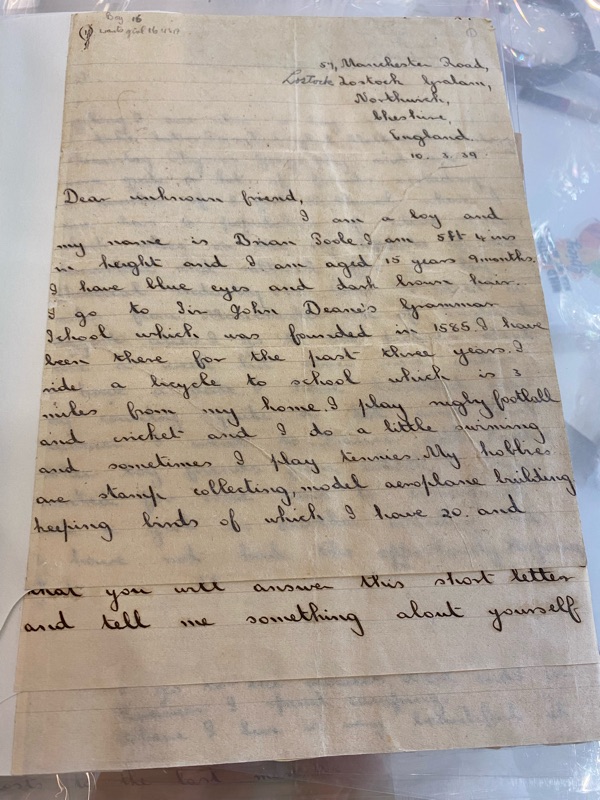 Boy 16
wants girl 16
①
57, Manchester Road,
Lostock Lostock Gralam,
Northwich,
Cheshire,
England.
10. 3. 39.
Dear unknown friend,
I am a boy and
my name is Brian Poole. I am 5ft 4 ins
in height and I am aged 15 years 9 months.
I have blue eyes and dark brown hair.
I go to Sir John Deane's Grammar
School which was founded in 1585. I have
been there for the past three years. I
ride a bicycle to school which is 3
miles from my home. I play rugby football
and cricket and I do a little swiming
and sometimes I play tennies. My hobbies
are stamp collecting, model aeroplane building
keeping birds of which I have 20. and
that you will answer this short letter
and tell me something about yourself